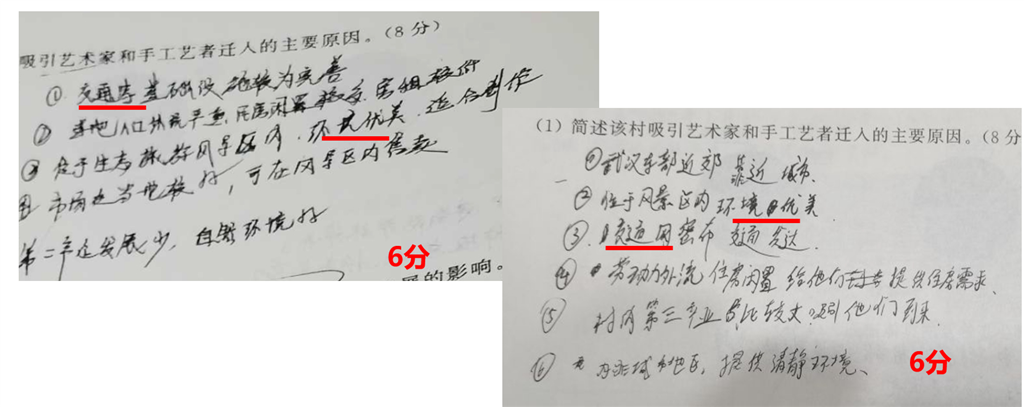 吸引艺术家和手工艺者迁入的主要原因。(8分)
① 交通等基础设施较为完善
② 当地人口外流严重,民居闲置较多,房租较低
③ 位于生态旅游风景区内,环境优美,适合创作
④ 市场也当地较好,可在风景区内售卖
第二产业发展少,自然环境好
6分
展的影响。
(1) 简述该村吸引艺术家和手工艺者迁入的主要原因。(8分
① 武汉东部近郊 靠近城市.
② 位于风景区内 环境优美
③ 交通网密布 交通发达.
④ 劳动力外流 住房闲置 给他们提供住房需求、
⑤ 村内第三产业占比较大 吸引他们到来.
⑥ 为非城市地区,提供清静环境、
6分